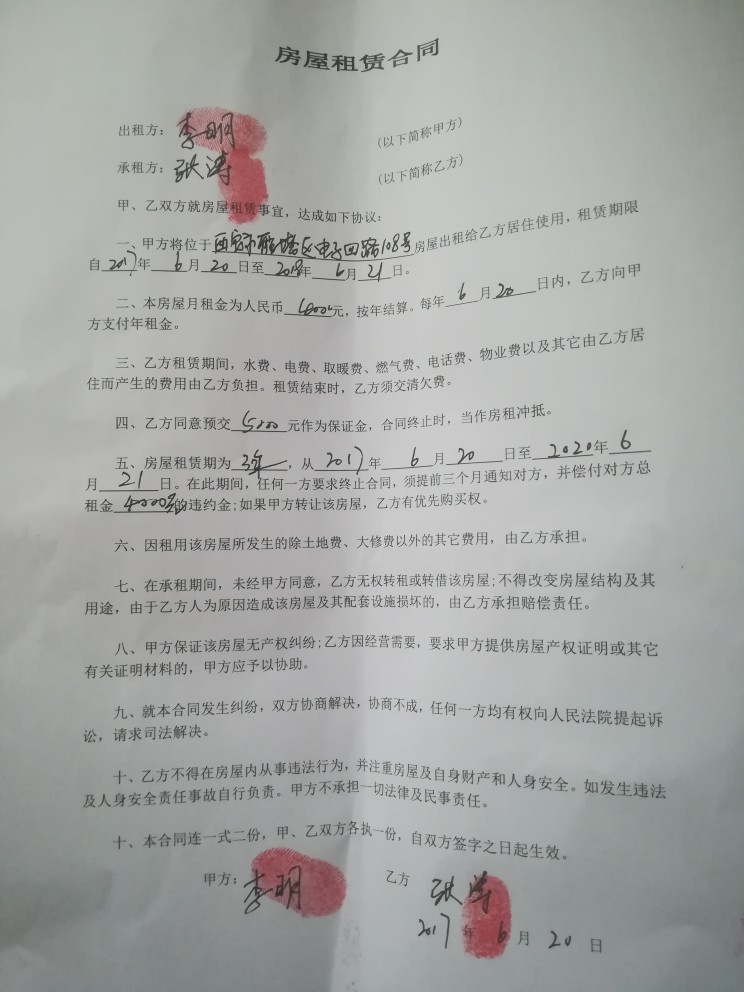 房屋租赁合同
出租方：李明 (以下简称甲方)
承租方：张涛 (以下简称乙方)
甲、乙双方就房屋租赁事宜，达成如下协议：
一、甲方将位于西安市雁塔区电子四路108号房屋出租给乙方居住使用，租赁期限
自2017年6月20日至2018年6月21日。
二、本房屋月租金为人民币 元，按年结算。每年6月20日内，乙方向甲
方支付年租金。
三、乙方租赁期间，水费、电费、取暖费、燃气费、电话费、物业费以及其它由乙方居
住而产生的费用由乙方负担。租赁结束时，乙方须交清欠费。
四、乙方同意预交5000元作为保证金，合同终止时，当作房租冲抵。
五、房屋租赁期为3年，从2017年6月20日至2020年6
月21日。在此期间，任何一方要求终止合同，须提前三个月通知对方，并偿付对方总
租金4000元的违约金;如果甲方转让该房屋，乙方有优先购买权。
六、因租用该房屋所发生的除土地费、大修费以外的其它费用，由乙方承担。
七、在承租期间，未经甲方同意，乙方无权转租或转借该房屋;不得改变房屋结构及其
用途，由于乙方人为原因造成该房屋及其配套设施损坏的，由乙方承担赔偿责任。
八、甲方保证该房屋无产权纠纷;乙方因经营需要，要求甲方提供房屋产权证明或其它
有关证明材料的，甲方应予以协助。
九、就本合同发生纠纷，双方协商解决，协商不成，任何一方均有权向人民法院提起诉
讼，请求司法解决。
十、乙方不得在房屋内从事违法行为，并注重房屋及自身财产和人身安全。如发生违法
及人身安全责任事故自行负责。甲方不承担一切法律及民事责任。
十、本合同连一式二份，甲、乙双方各执一份，自双方签字之日起生效。
甲方：李明 乙方 张涛
2017年6月20日